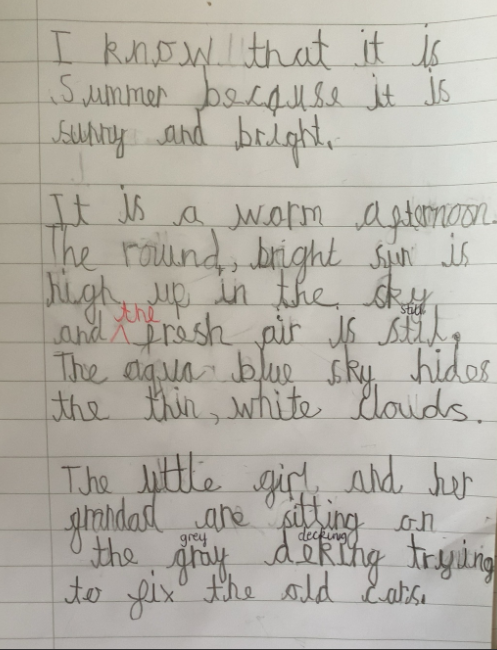 I know that it is
Summer because it is
sunny and bright.
It is a worm afternoon.
The round, bright sun is
high up in the sky
still
the
and ^ fresh air is stil.
The aqua blue sky hides
the thin, white clouds.
The little girl and her
grandad are sitting on
grey decking
the gray deking trying
to fix the old cars.